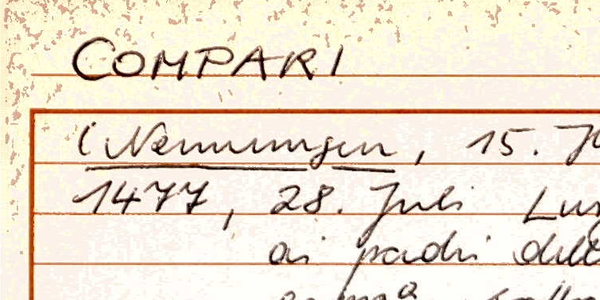 COMPARI
(Nennungen, 15. J
1477, 28. Juli Lu
ai padri dell